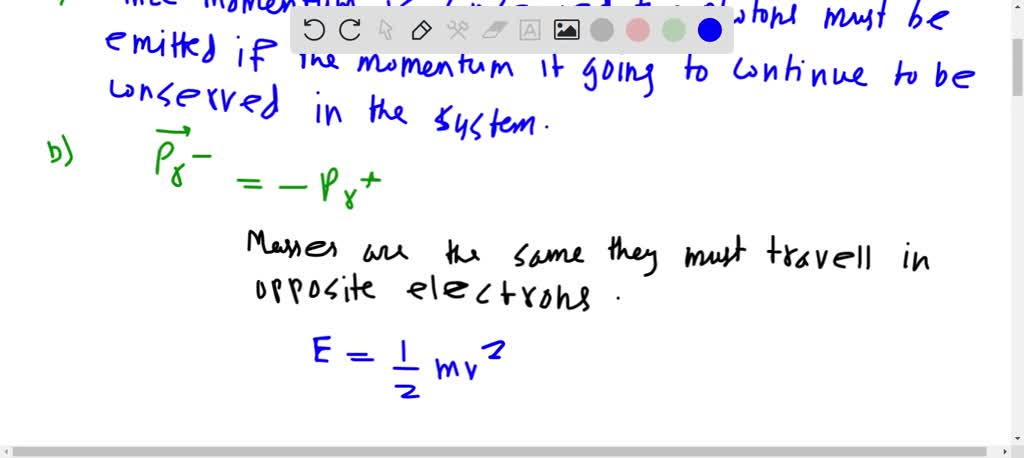 momentum
photons must be
emitted if the momentum it going to continue to be
conserved in the system.
b) Pγ-
= - Pγ+
Masses are the same they must travell in
opposite electrons.
E = 1/2 mv²
A